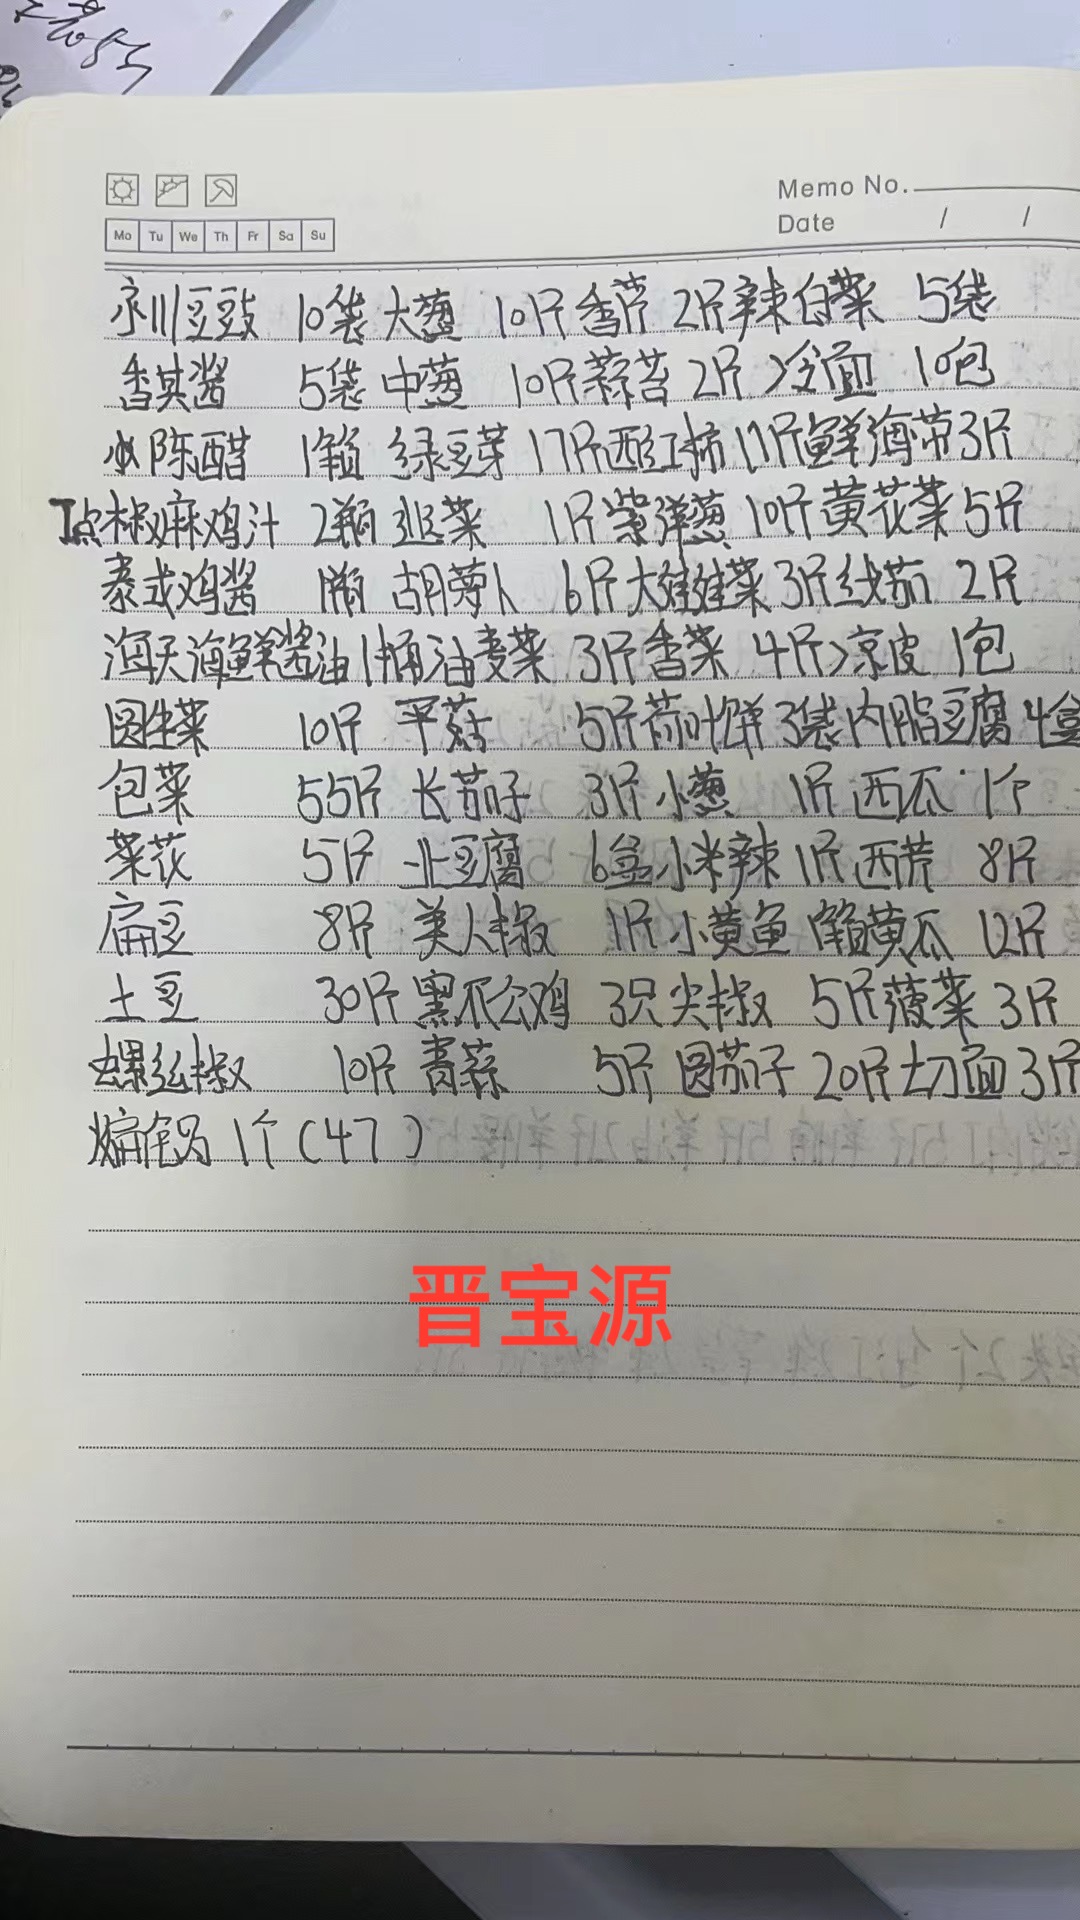 Memo No.
Date / /
Mo Tu We Th Fr Sa Su
永川豆豉 10袋 大葱 10斤 香芹 2斤 辣白菜 5袋
香其酱 5袋 中葱 10斤 蒜苔 2斤 冷面 10包
陈醋 1箱 绿豆芽 17斤 西红柿 17斤 鲜海带 3斤
顶点椒麻鸡汁 2瓶 韭菜 1斤 紫洋葱 10斤 黄花菜 5斤
泰式鸡酱 1瓶 胡萝卜 6斤 大娃娃菜 3斤 线茄 2斤
海天海鲜酱油 1桶 油麦菜 3斤 香菜 4斤 凉皮 1包
圆生菜 10斤 平菇 5斤 荷叶饼 3袋 内脂豆腐 4盒
包菜 55斤 长茄子 3斤 小葱 1斤 西瓜 1个
菜花 5斤 北豆腐 6盒 小米辣 1斤 西芹 8斤
扁豆 8斤 美人椒 1斤 小黄鱼 1箱 黄瓜 12斤
土豆 30斤 黑不公鸡 3只 尖椒 5斤 菠菜 3斤
螺丝椒 10斤 青蒜 5斤 圆茄子 20斤 切面 3斤
1个(47)
晋宝源